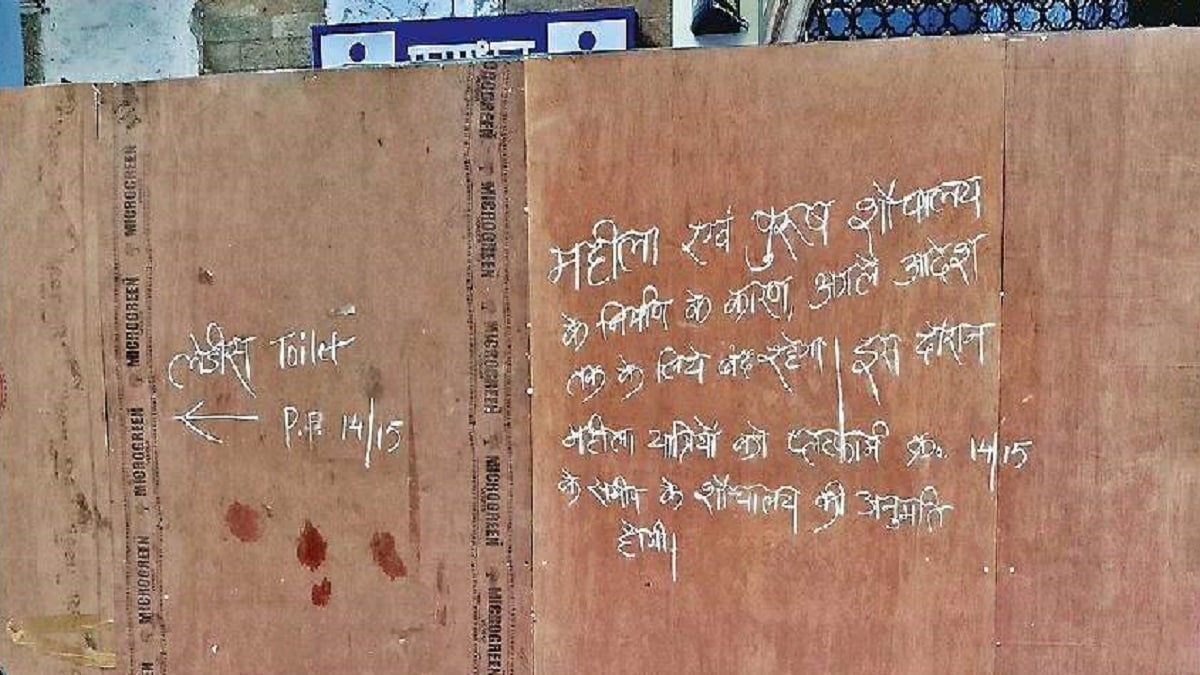 लेडीस Toilet
← P.F. 14/15
महीला एवं पुरूष शौचालय
के निर्माण के कारण, अगले आदेश
तक के लिये बंद रहेगा। इस दौरान
महीला यात्रियों को प्लाटफार्म क्र. 14/15
के समीप के शौचालय की अनुमति
होगी।
MICROGREEN
MICROGREEN
MICROGREEN
MICROGREEN
MICROGREEN
MICROGREEN
MICROGREEN
MICROGREEN
MICROGREEN
MICROGREEN